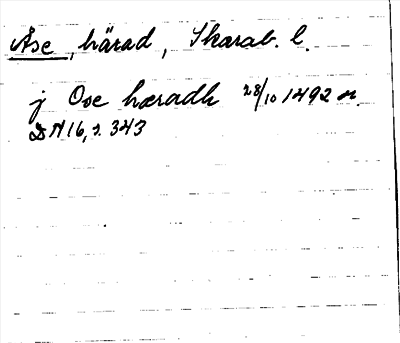 Åse, härad, Skarab. l.
j Ose hæradh 28/10 1492 or.
DN 16, s. 343